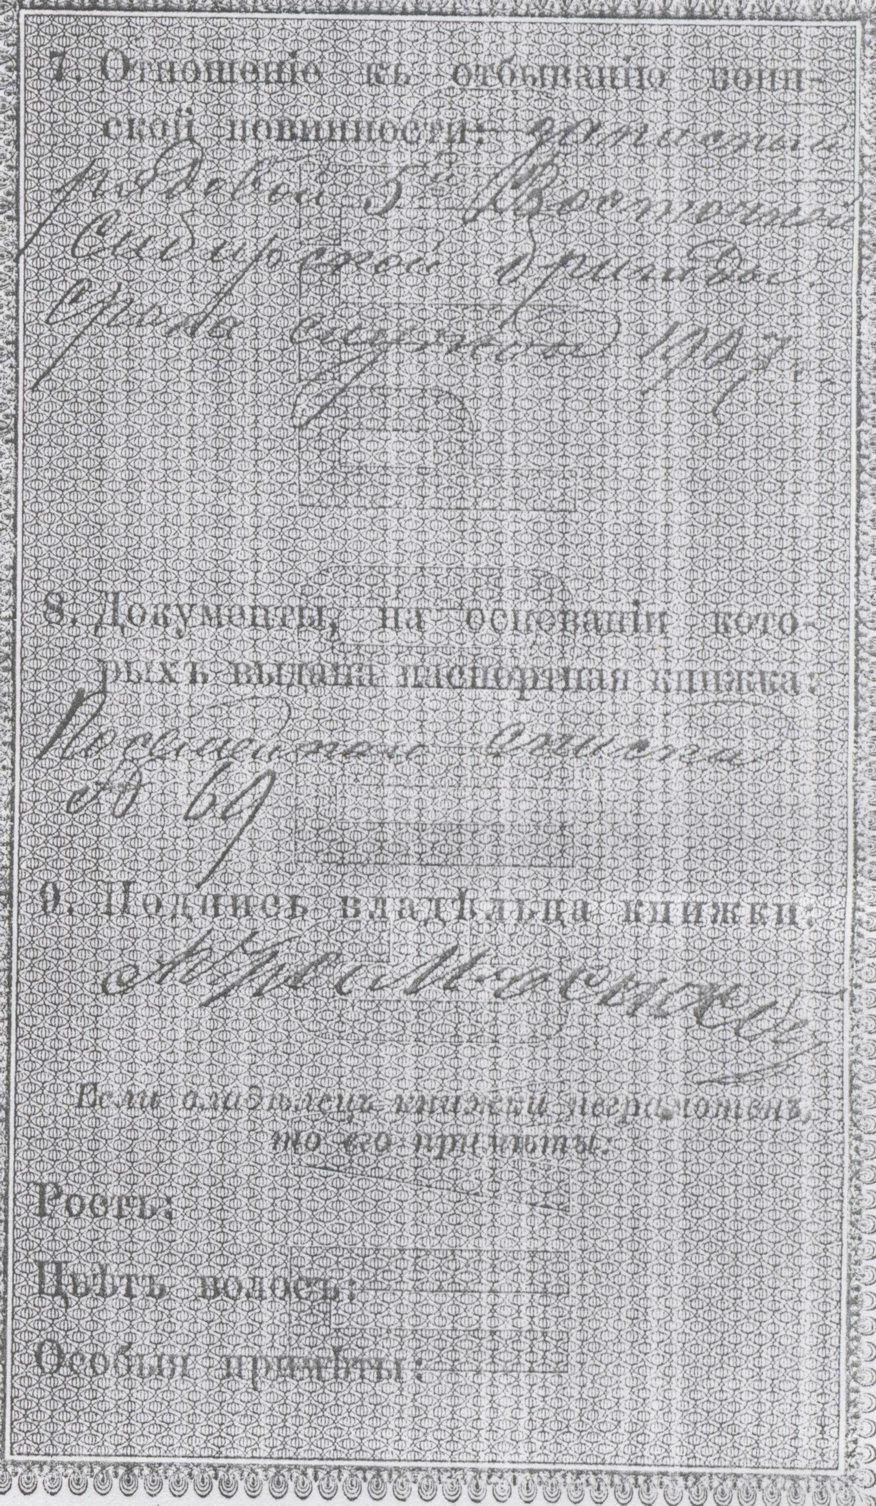 7. Отношеніе къ отбыванію воин-
ской повинности: запасный
рядовой 5й Восточной
Сибирской бригады.
Срока службы 1907.
8. Документы, на основаніи кото-
рыхъ выдана паспортная книжка:
Посемейнаго списка
69
9. Подпись владѣльца книжки:
Если владѣлецъ книжки неграмотенъ,
то его примѣты:
Ростъ:
Цвѣтъ волосъ:
Особыя примѣты: